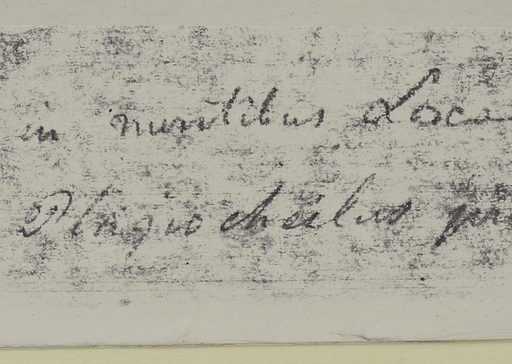 in montibus Loca
Plagiocheilus